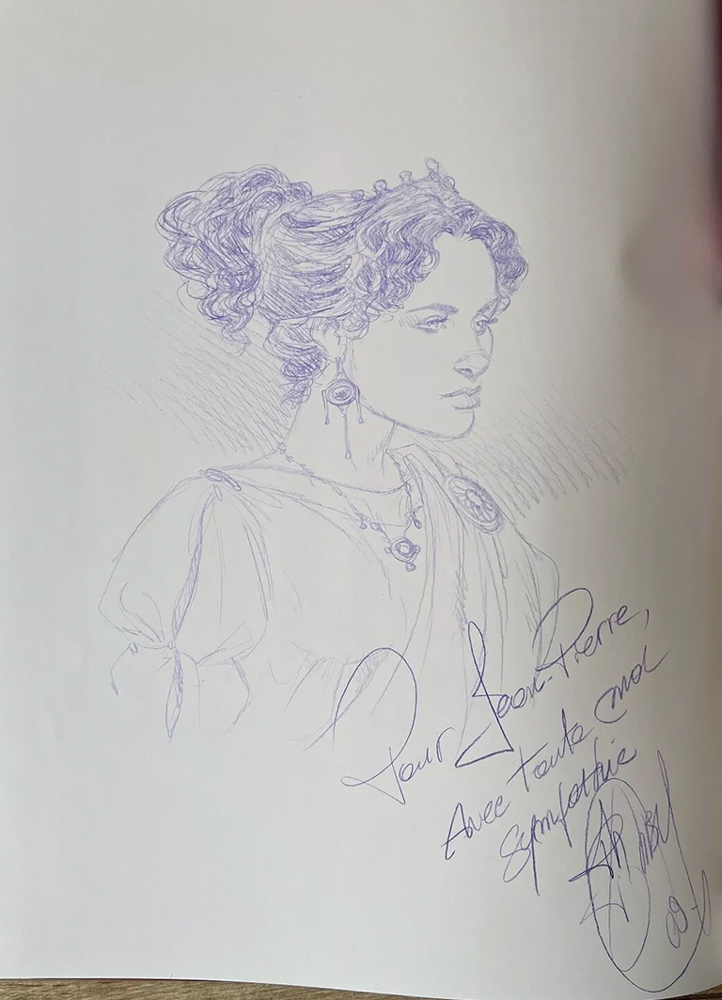 Pour Jean-Pierre,
Avec toute ma
Sympathie